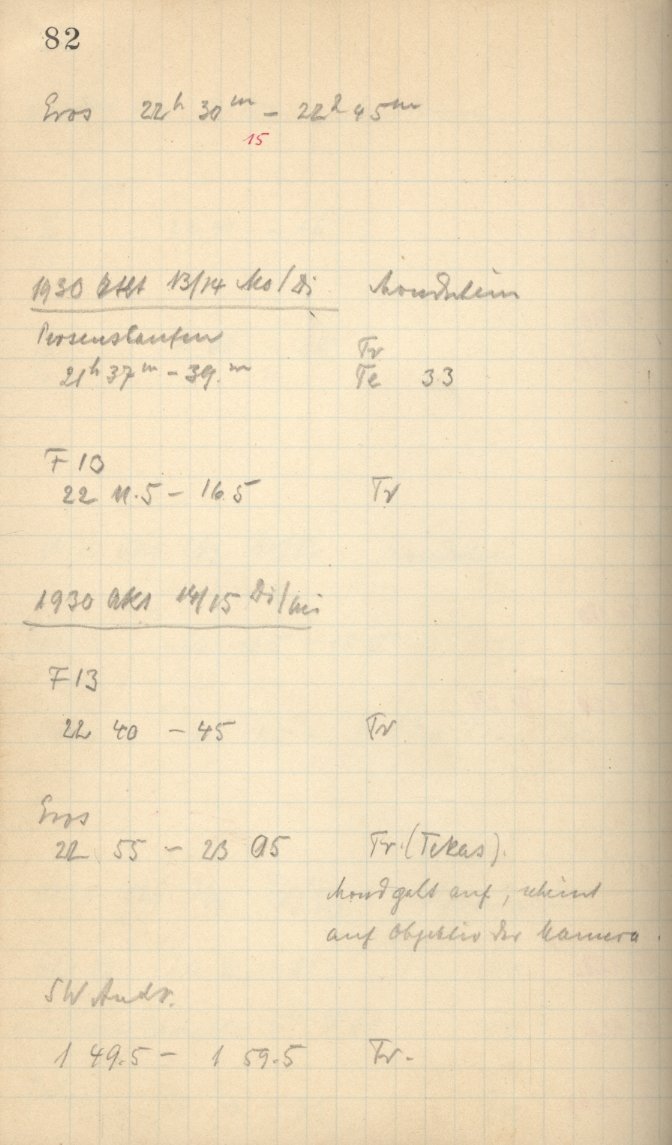 82
Eros 22h 30m - 22h 45m
15
1930 Okt 13/14 Mo/Di Mondschein
21h 37m - 39.m Tr
Te 33
F 13
22 11.5 - 16.5 Tr
1930 Okt 14/15 Di/Mi
F 13
22 40 - 45 Tr
Eros
22 55 - 23 05 Tr. (Tekas).
Mond geht auf, scheint
auf Objektiv der Kamera.
SW Andr.
1 49.5 - 1 59.5 Tr.